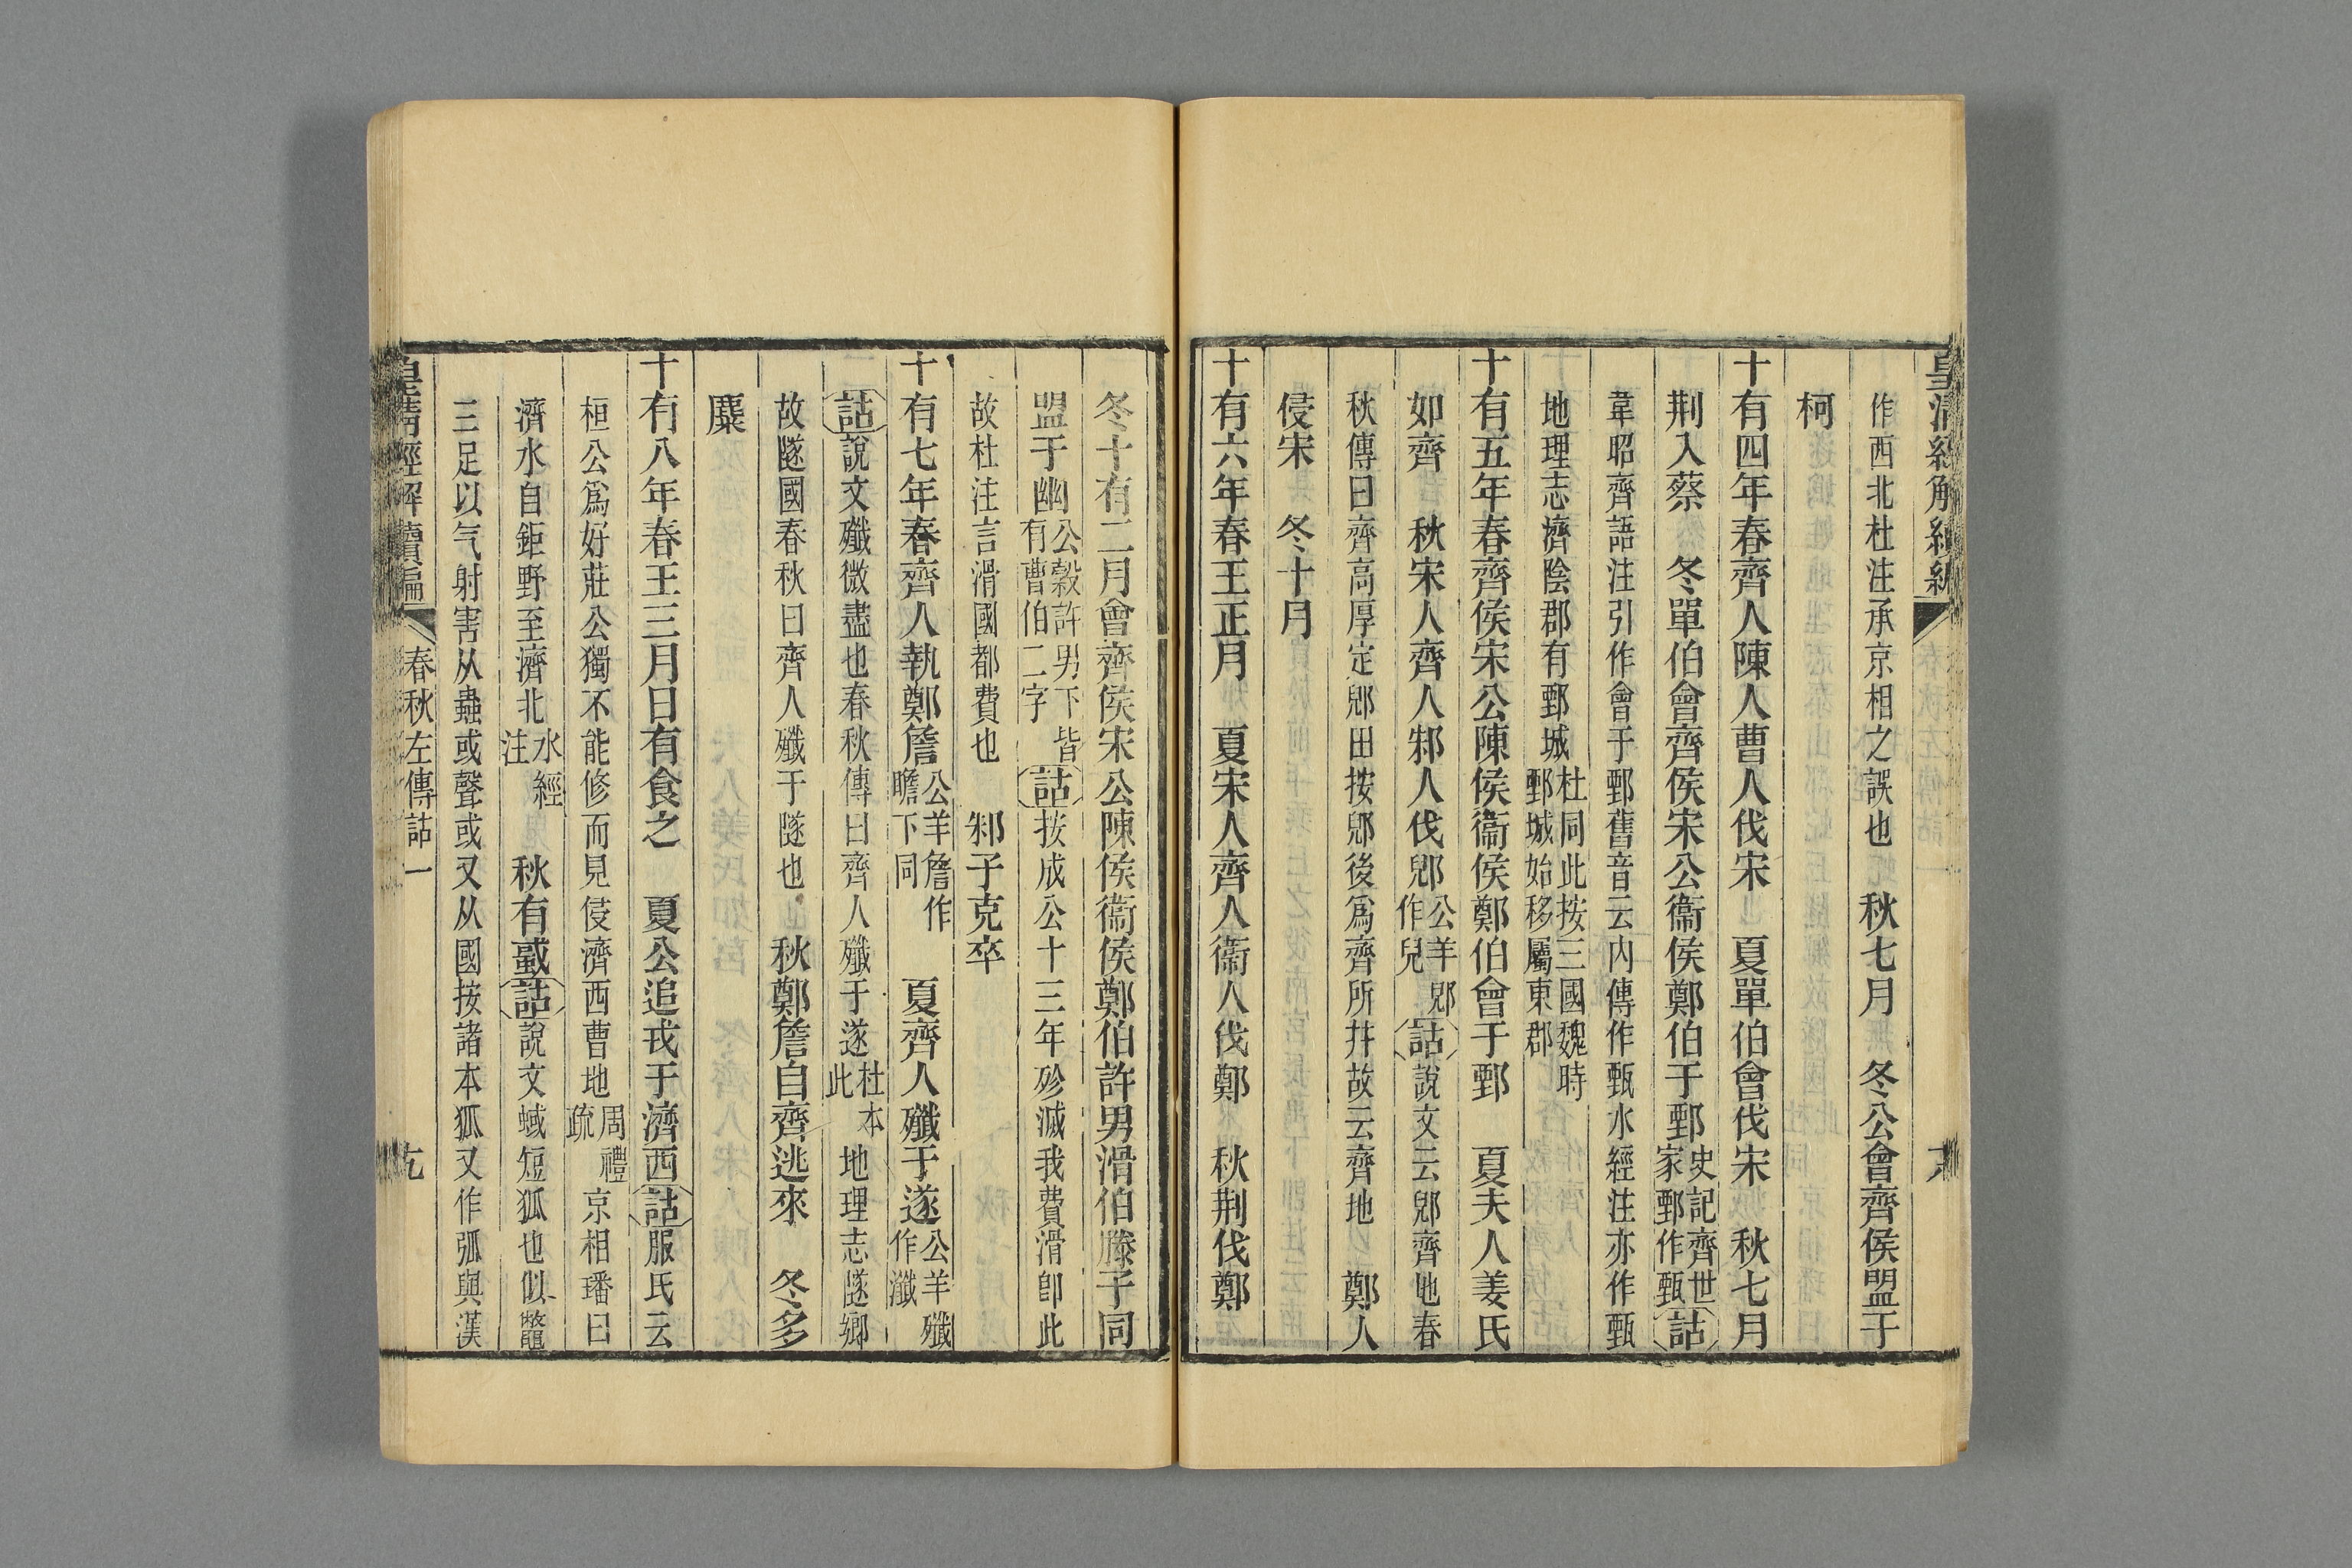 作西北杜注承京相之誤也　秋七月　冬公會齊侯盟于
柯
十有四年春齊人陳人曹人伐宋　夏單伯會伐宋　秋七月
荆入蔡　冬單伯會齊侯宋公衞侯鄭伯于鄄史記齊世家鄄作甄詁
韋昭齊語注引作會于鄄舊音云内傳作甄水經注亦作甄
地理志濟陰郡有鄄城杜同此按三國魏時鄄城始移屬東郡
十有五年春齊侯宋公陳侯衞侯鄭伯會于鄄　夏夫人姜氏
如齊　秋宋人齊人邾人伐郳公羊郳作兒詁說文云郳齊地春
秋傳曰齊高厚定郳田按郳後爲齊所并故云齊地　鄭人
侵宋　冬十月
十有六年春王正月　夏宋人齊人衞人伐鄭　秋荆伐鄭
冬十有二月會齊侯宋公陳侯衞侯鄭伯許男滑伯滕子同
盟于幽公穀許男下皆有曹伯二字詁按成公十三年殄滅我費滑卽此
故杜注言滑國都費也　邾子克卒
十有七年春齊人執鄭詹公羊詹作瞻下同　夏齊人殲于遂公羊殲作瀸
詁說文殲微盡也春秋傳曰齊人殲于遂杜本此　地理志隧鄉
故隧國春秋曰齊人殲于隧也　秋鄭詹自齊逃來　冬多
麋
十有八年春王三月日有食之　夏公追戎于濟西詁服氏云
桓公爲好莊公獨不能修而見侵濟西曹地周禮疏京相璠曰
濟水自鉅野至濟北水經注　秋有蜮詁說文蜮短狐也似鼈
三足以气射害从蟲或聲或又从國按諸本狐又作弧與漢
皇清經解續編　春秋左傳詁一　九